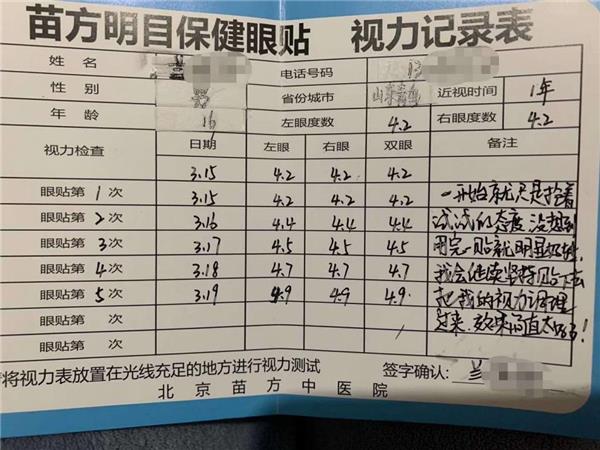 苗方明目保健眼贴 视力记录表
姓名 电话号码 13
性别 男 省份城市 山东青岛 近视时间 1年
年龄 16 左眼度数 4.2 右眼度数 4.2
视力检查 日期 左眼 右眼 双眼 备注
3.15 4.2 4.2 4.2
眼贴第1次 3.15 4.2 4.2 4.2 一开始就只是抱着
眼贴第2次 3.16 4.4 4.4 4.4 试试的态度没想到
眼贴第3次 3.17 4.5 4.5 4.5 用完一贴就明显
眼贴第4次 3.18 4.7 4.7 4.7 我会继续坚持贴下去
眼贴第5次 3.19 4.9 4.9 4.9 把我的视力调理
眼贴第 次 过来.效果简直太好了!
眼贴第 次
将视力表放置在光线充足的地方进行视力测试 签字确认: 兰
北京苗方中医院